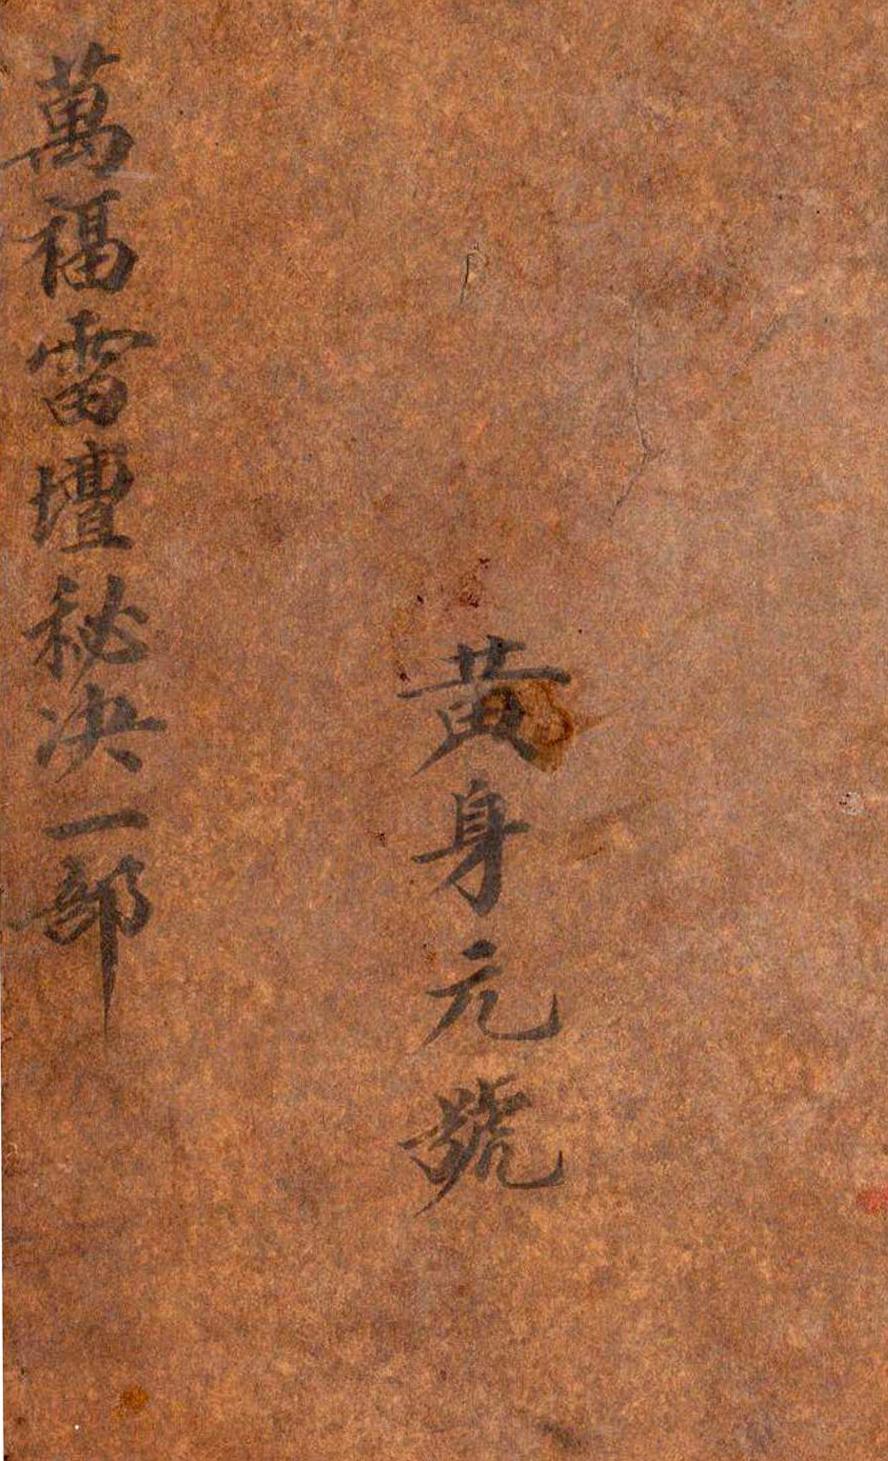 黄身元號
萬福雷壇秘决一部